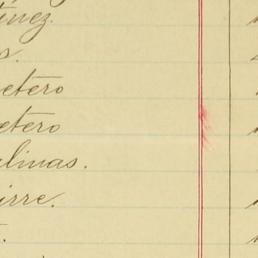 tínez.
s.
etero
etero
alinas.
irre.